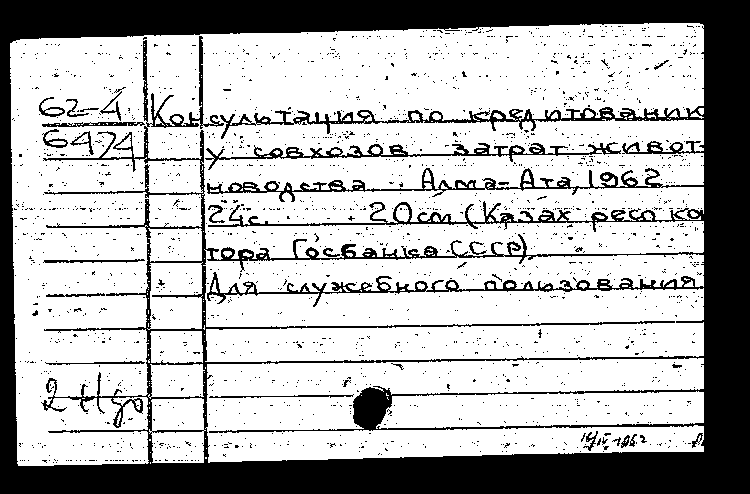 62-4 Консультация по кредитовани
6474 у совхозов затрат живот-
новодства. Алма-Ата, 1962
24с. 20см (Казах респ ко
тора Госбанка СССР)
Для служебного пользования.